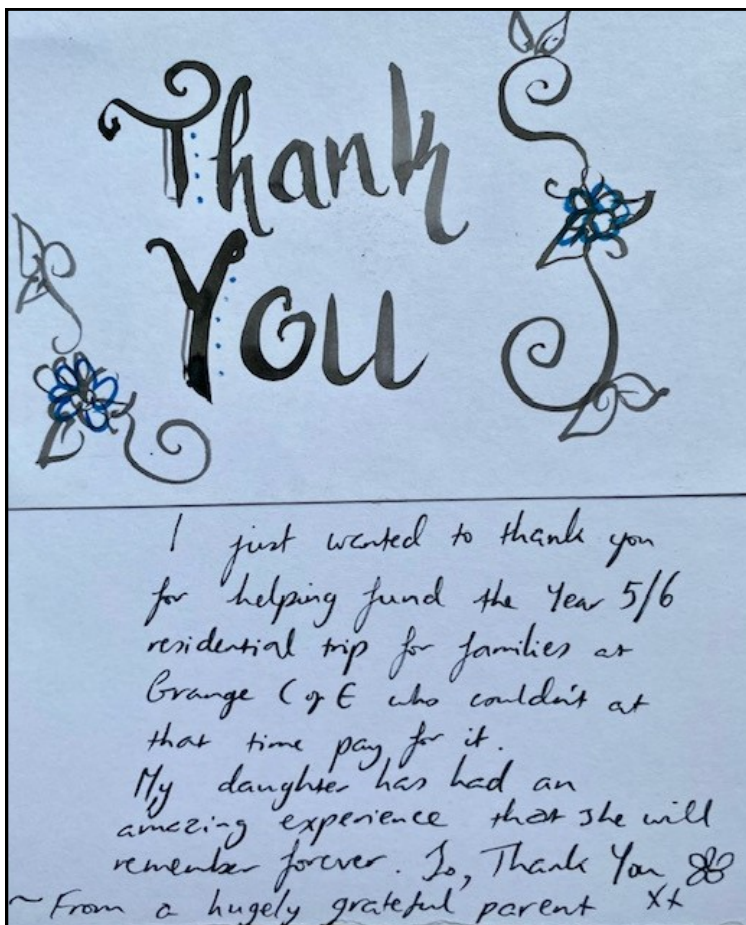 Thank
You
I just wanted to thank you
for helping fund the Year 5/6
residential trip for families at
Grange C of E who couldn't at
that time pay for it.
My daughter has had an
amazing experience that she will
remember forever. So, Thank You
~ From a hugely grateful parent xx